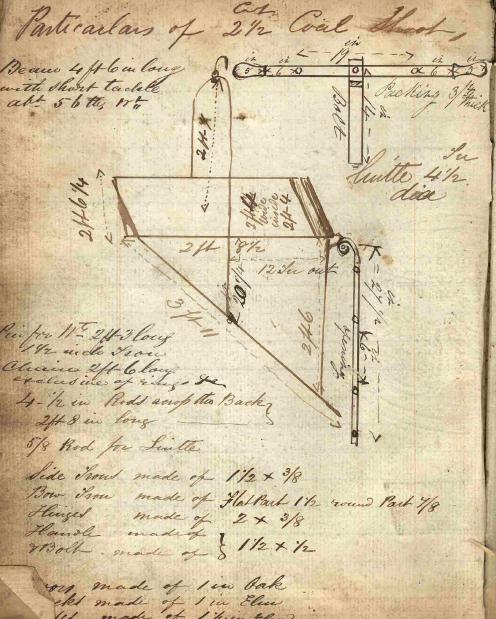 Particarlars of 2 1/2 Cwt Coal Shoot,
Beam 4 ft 6 in long
with short tackle
abt 56 lb, Wt
in 5 in 6 in 19 in 6 in 5
Packing 3/4 thick
Bolt
14 in
4 1/2 In
dia
2 ft 4
2 ft 6 1/4
wide inside 2 ft 4
2 ft 8 1/2
12 In out
3 ft 11
2 ft 6
opening
Pin for Wt 2 ft 3 long
1 1/2 inch Iron
Chains 2 ft 6 long
exclusive of rings &c
4 - 1/2 in Rods across the Back
2 ft 8 in long
5/8 Rod for
Side Irons made of 1 1/2 × 3/8
Bow Iron made of Flat Part 1 1/2 round Part 7/8
Hinges made of 2 × 3/8
Handle made of
& Bolt made of } 1 1/2 × 1/2
made of 1 in Oak
made of 1 in Elm
made of